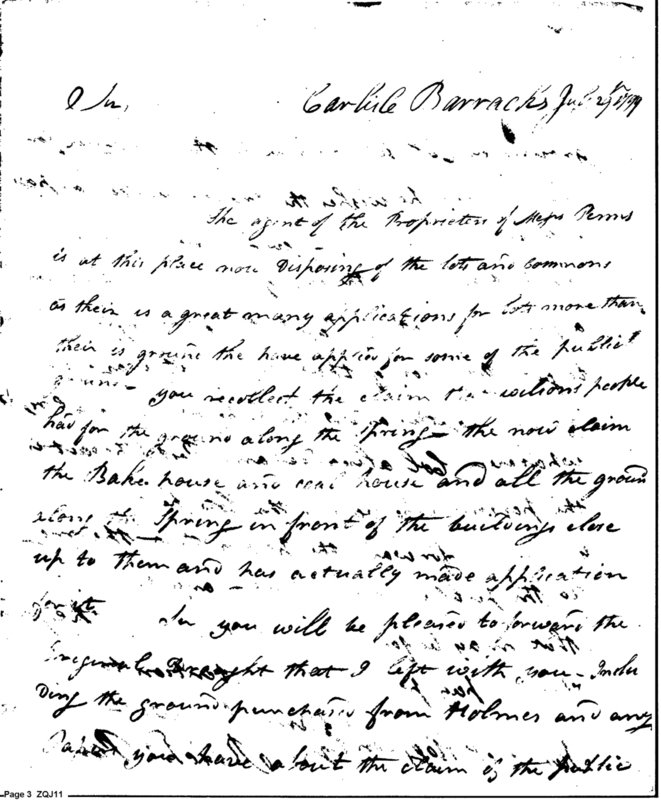 Sir, Carlisle Barracks July 29th 1799
The agent of the Proprietors of Messrs Penns
is at this place now Disposing of the lots and Commons
as their is a great many applications for lots more than
their is ground the have applied for some of the public
ground - you recollect the claim the wilsons people
had for the ground along the Spring - the now claim
the Bake house and coal house and all the ground
along the Spring in front of the buildings close
up to them and has actually made application
for it. Sir you will be pleased to forward the
Original Draught that I left with you - Inclu
ding the ground purchased from Holmes and any
Papers you have about the claim of the public
Page 3 ZQJ11